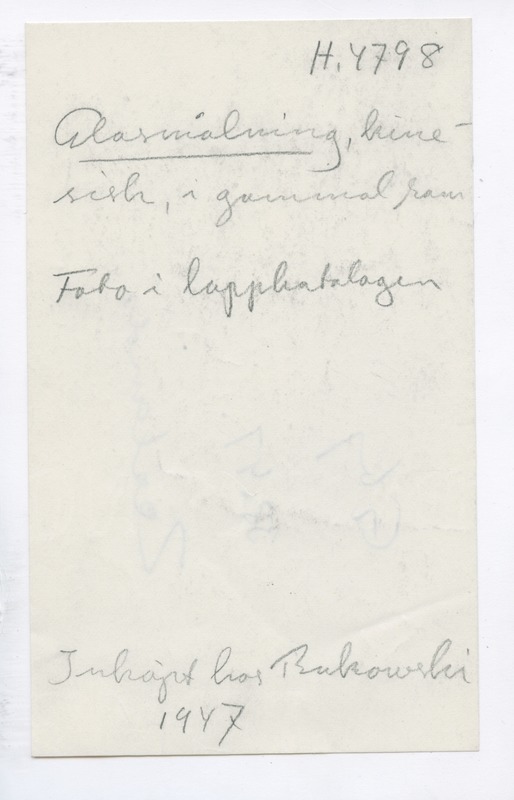 H.4798
Glasmålning, kine-
sisk, i gammal ram
Foto i lappkatalogen
Inköpt hos Bukowski
1947